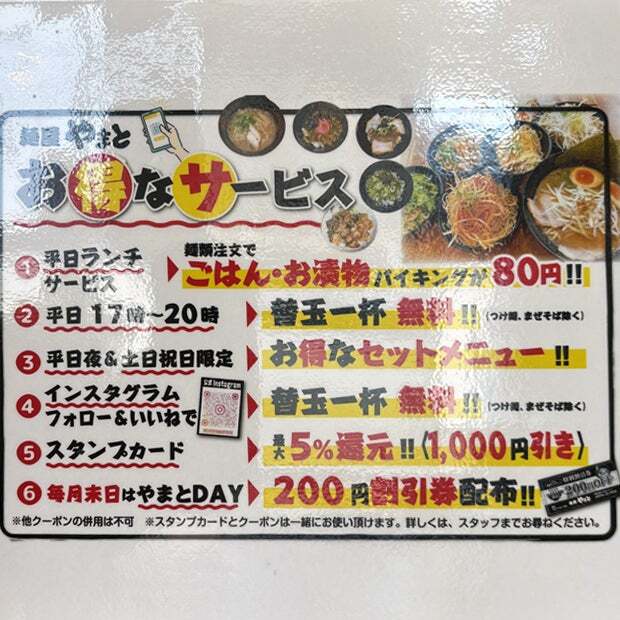 麺屋 やまと
お得なサービス
1 平日ランチサービス
麺類注文で
ごはん・お漬物バイキングが80円!!
2 平日 17時〜20時
替玉一杯 無料!! (つけ麺、まぜそば除く)
3 平日夜&土日祝日限定
お得なセットメニュー!!
4 インスタグラム
フォロー&いいねで
公式 Instagram
替玉一杯 無料!! (つけ麺、まぜそば除く)
5 スタンプカード
最大5%還元!!(1,000円引き)
6 毎月末日はやまとDAY
200円割引券配布!!
200円OFF
※他クーポンの併用は不可 ※スタンプカードとクーポンは一緒にお使い頂けます。詳しくは、スタッフまでお尋ねください。